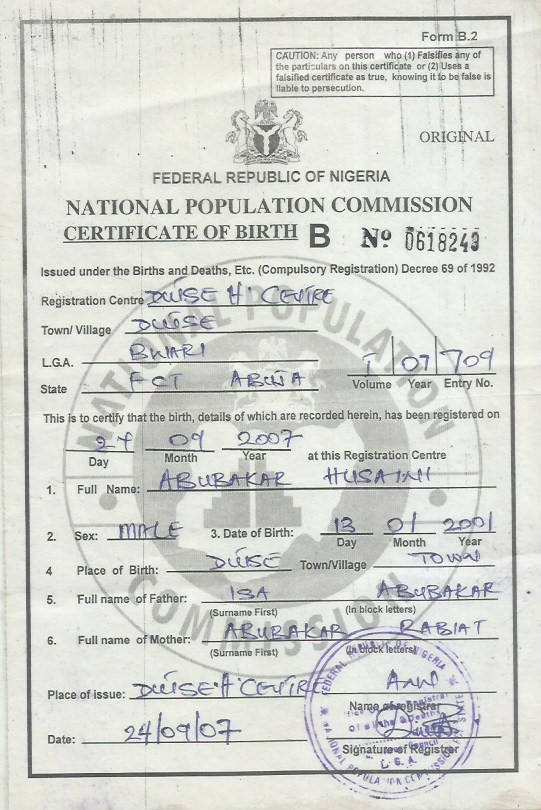 Form B.2
CAUTION: Any person who (1) Falsifies any of
the particulars on this certificate or (2) Uses a
falsified certificate as true, knowing it to be false is
liable to persecution.
ORIGINAL
FEDERAL REPUBLIC OF NIGERIA
NATIONAL POPULATION COMMISSION
CERTIFICATE OF BIRTH B No 0618243
Issued under the Births and Deaths, Etc. (Compulsory Registration) Decree 69 of 1992
Registration Centre DUTSE H' CENTRE
Town/ Village DUTSE
L.G.A. BWARI
State FCT ABUJA
1 07 709
Volume Year Entry No.
This is to certify that the birth, details of which are recorded herein, has been registered on
24 09 2007 at this Registration Centre
Day Month Year
1. Full Name: ABUBAKAR HUSAINI
2. Sex: MALE 3. Date of Birth: 13 01 2001
Day Month Year
4 Place of Birth: DUTSE Town/Village TOWN
5. Full name of Father: ISA ABUBAKAR
(Surname First) (In block letters)
6. Full name of Mother: ABUBAKAR RABIAT
(Surname First) (In block letters)
Place of issue: DUTSE H' CENTRE
Name of registrar
Date: 24/09/07
Signature of Registrar
NATIONAL POPULATION COMMISSION
L.G.A.